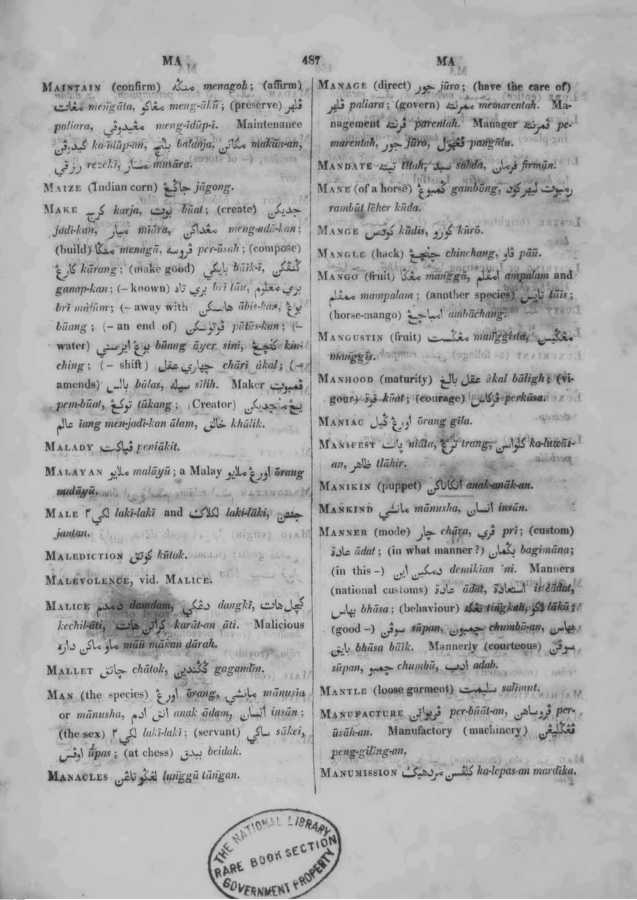 MA
487
MA
MAINTAIN (confirm) منگه menagoh; (affirm)
مڠات meṅgāta, مڠاكو meng-ākū; (preserve) ڤلهر
paliara, مڠيدوڤي meng-idūp-i. Maintenance
كيدوڤن ka-idūp-an, بلنج balanja, مكانن makān-an,
رزقي rezekī, مسار musāra.
MAIZE (Indian corn) جاگڠ jāgong.
MAKE كرج karja, بوت būat; (create) جديكن
jadi-kan, ميار miāra, مڠداكن meng-adā-kan;
(build) menagā, ڤروسه per-ūsah; (compose)
كارڠ kārang; (make good) بايكي bāik-ī, گنڤكن
ganap-kan; (– known) بري تاو brī tāu, بري معلوم
brī mālūm; (– away with هابسكن ābis-kan, بوڠ
būang; (– an end of) ڤوتسكن pūtus-kan; (–
water) بوڠ اير سني būang āyer sini, كنچڠ kin-
ching; (– shift) چاري عقل chāri ākal; (–
amends) بالس bālas, سيله sīlih. Maker ڤمبوت
pem-būat, توكڠ tūkang; (Creator) يڠ منجديكن
عالم iang men-jadi-kan ālam, خالق khālik.
MALADY ڤڽاكت peniākit.
MALAYAN ملايو malāyū; a Malay اورڠ ملايو ōrang
malāyū.
MALE لكي٢ lakī-lakī and لكلاك lakī-lāki, جنتن
jantan.
MALEDICTION كوتق kūtok.
MALEVOLENCE, vid. MALICE.
MALICE دمدم damdam, دڠكي dangkī, كچل هات
kechil-āti, كراتن هات karāt-an āti. Malicious
ماو ماكن داره māū mākan dārah.
MALLET چاتق chātok, گگندين gagandīn.
MAN (the species) اورڠ ōrang, مانسي mānusia
or mānusha, انق ادم anak ādam, انسان insān;
(the sex) لكي٢ lakī-lakī; (servant) ساكي sākei,
اوڤس ūpas; (at chess) بيدق beidak.
MANACLES لڠگو تاڠن luṅggū tāṅgan.
MANAGE (direct) جور jūra; (have the care of)
ڤلهر paliara; (govern) ممرنته memarentah. Ma-
nagement ڤرنته parentah. Manager ڤمرنته pe-
marentah, جور jūra, ڤڠهولو pangūlu.
MANDATE تيته tītah, سبد sabda, فرمان firmān.
MANE (of a horse) گمبوڠ gambōng, رمبوت ليهر كود
rambūt lēher kūda.
MANGE كودس kūdis, كورو kūrō.
MANGLE (hack) چنچڠ chinchang, ڤاو pāū.
MANGO (fruit) مڠگا manggā, امڤلم ampalam and
ممڤلم mampalam; (another species) تايس tāis;
(horse-mango) امباچڠ ambāchang.
MANGUSTIN (fruit) مڠگست manggista, مڠگيس
manggīs.
MANHOOD (maturity) عقل بالغ ākal bāligh; (vi-
gour) قوة kūat; (courage) ڤركاس perkāsa.
MANIAC اورڠ گيل ōrang gila.
MANIFEST ڽات niāta, ترڠ trang, كلواسن ka-luwās-
an, ظاهر tlāhir.
MANIKIN (puppet) انكاناكن anak-anāk-an.
MANKIND مانسي mānusha, انسان insān.
MANNER (mode) چار chāra, ڤري prī; (custom)
عادة ādat; (in what manner?) بڬيمان bagimāna;
(in this –) دمكين اين demikian ini. Manners
(national customs) عادة ādat, استعادة istiādat,
بهاس bhāsa; (behaviour) تڠكه لاكو tingkah lākū;
(good –) سوڤن sūpan, چمبوان chumbū-an, بهاس
بايق bhāsa bāik. Mannerly (courteous) سوڤن
sūpan, چمبو chumbū, ادب adab.
MANTLE (loose garment) سليمت salimut.
MANUFACTURE ڤربواتن per-būāt-an, ڤروساهن per-
ūsāh-an. Manufactory (machinery) ڤڠگليڠن
peng-gilīng-an.
MANUMISSION كلڤسن مردهيك ka-lepas-an mardika.
THE NATIONAL LIBRARY
RARE BOOK SECTION
GOVERNMENT PROPERTY